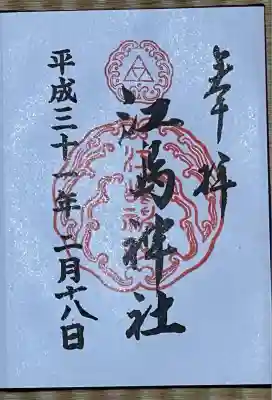 奉拝
江島神社
平成三十一年二月十八日